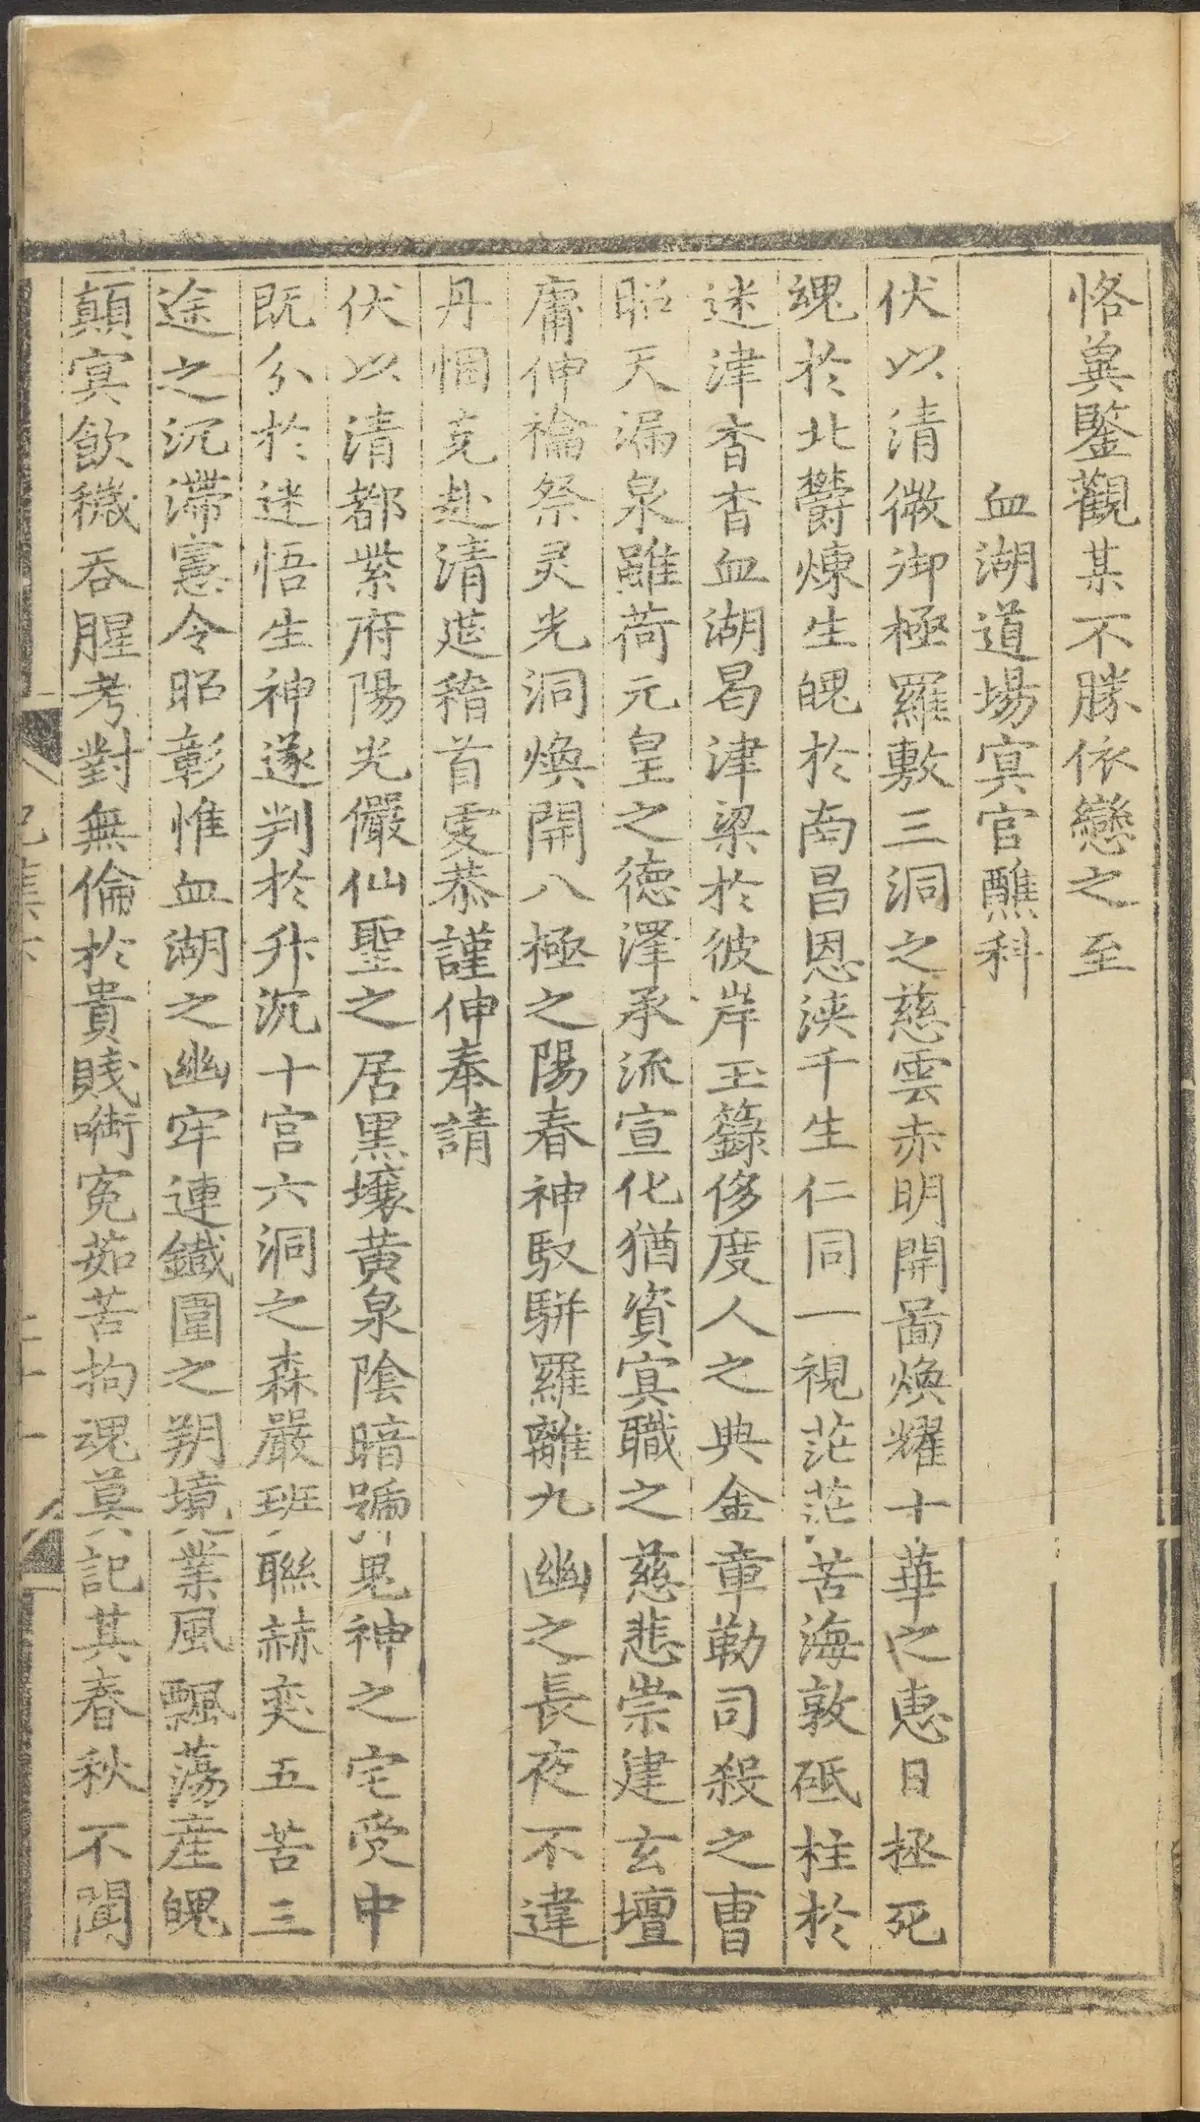 恪冀鑒觀某不勝依戀之至
血湖道場冥官醮科
伏以清微御極羅敷三洞之慈雲赤明開啚煥耀十華之惠日拯死
魂於北欝煉生魄於南昌恩浹千生仁同一視茫茫苦海敦砥柱於
迷津杳杳血湖曷津梁於彼岸玉籙侈度人之典金章勒司殺之曹
昭天漏泉雖荷元皇之德澤承流宣化猶資冥職之慈悲崇建玄壇
庸伸禬祭灵光洞煥開八極之陽春神馭駢羅離九幽之長夜不違
丹悃克赴清莚稽首虔恭謹伸奉請
伏以清都紫府陽光儼仙聖之居黑壤黄泉陰暗號鬼神之宅受中
既分於迷悟生神遂判於升沉十宮六洞之森嚴班聯赫奕五苦三
途之沉滯憲令昭彰惟血湖之幽牢連鐵圍之朔境業風飄蕩産魄
顛冥飲穢吞腥考對無倫於貴賤啣寃茹苦拘魂莫記其春秋不聞